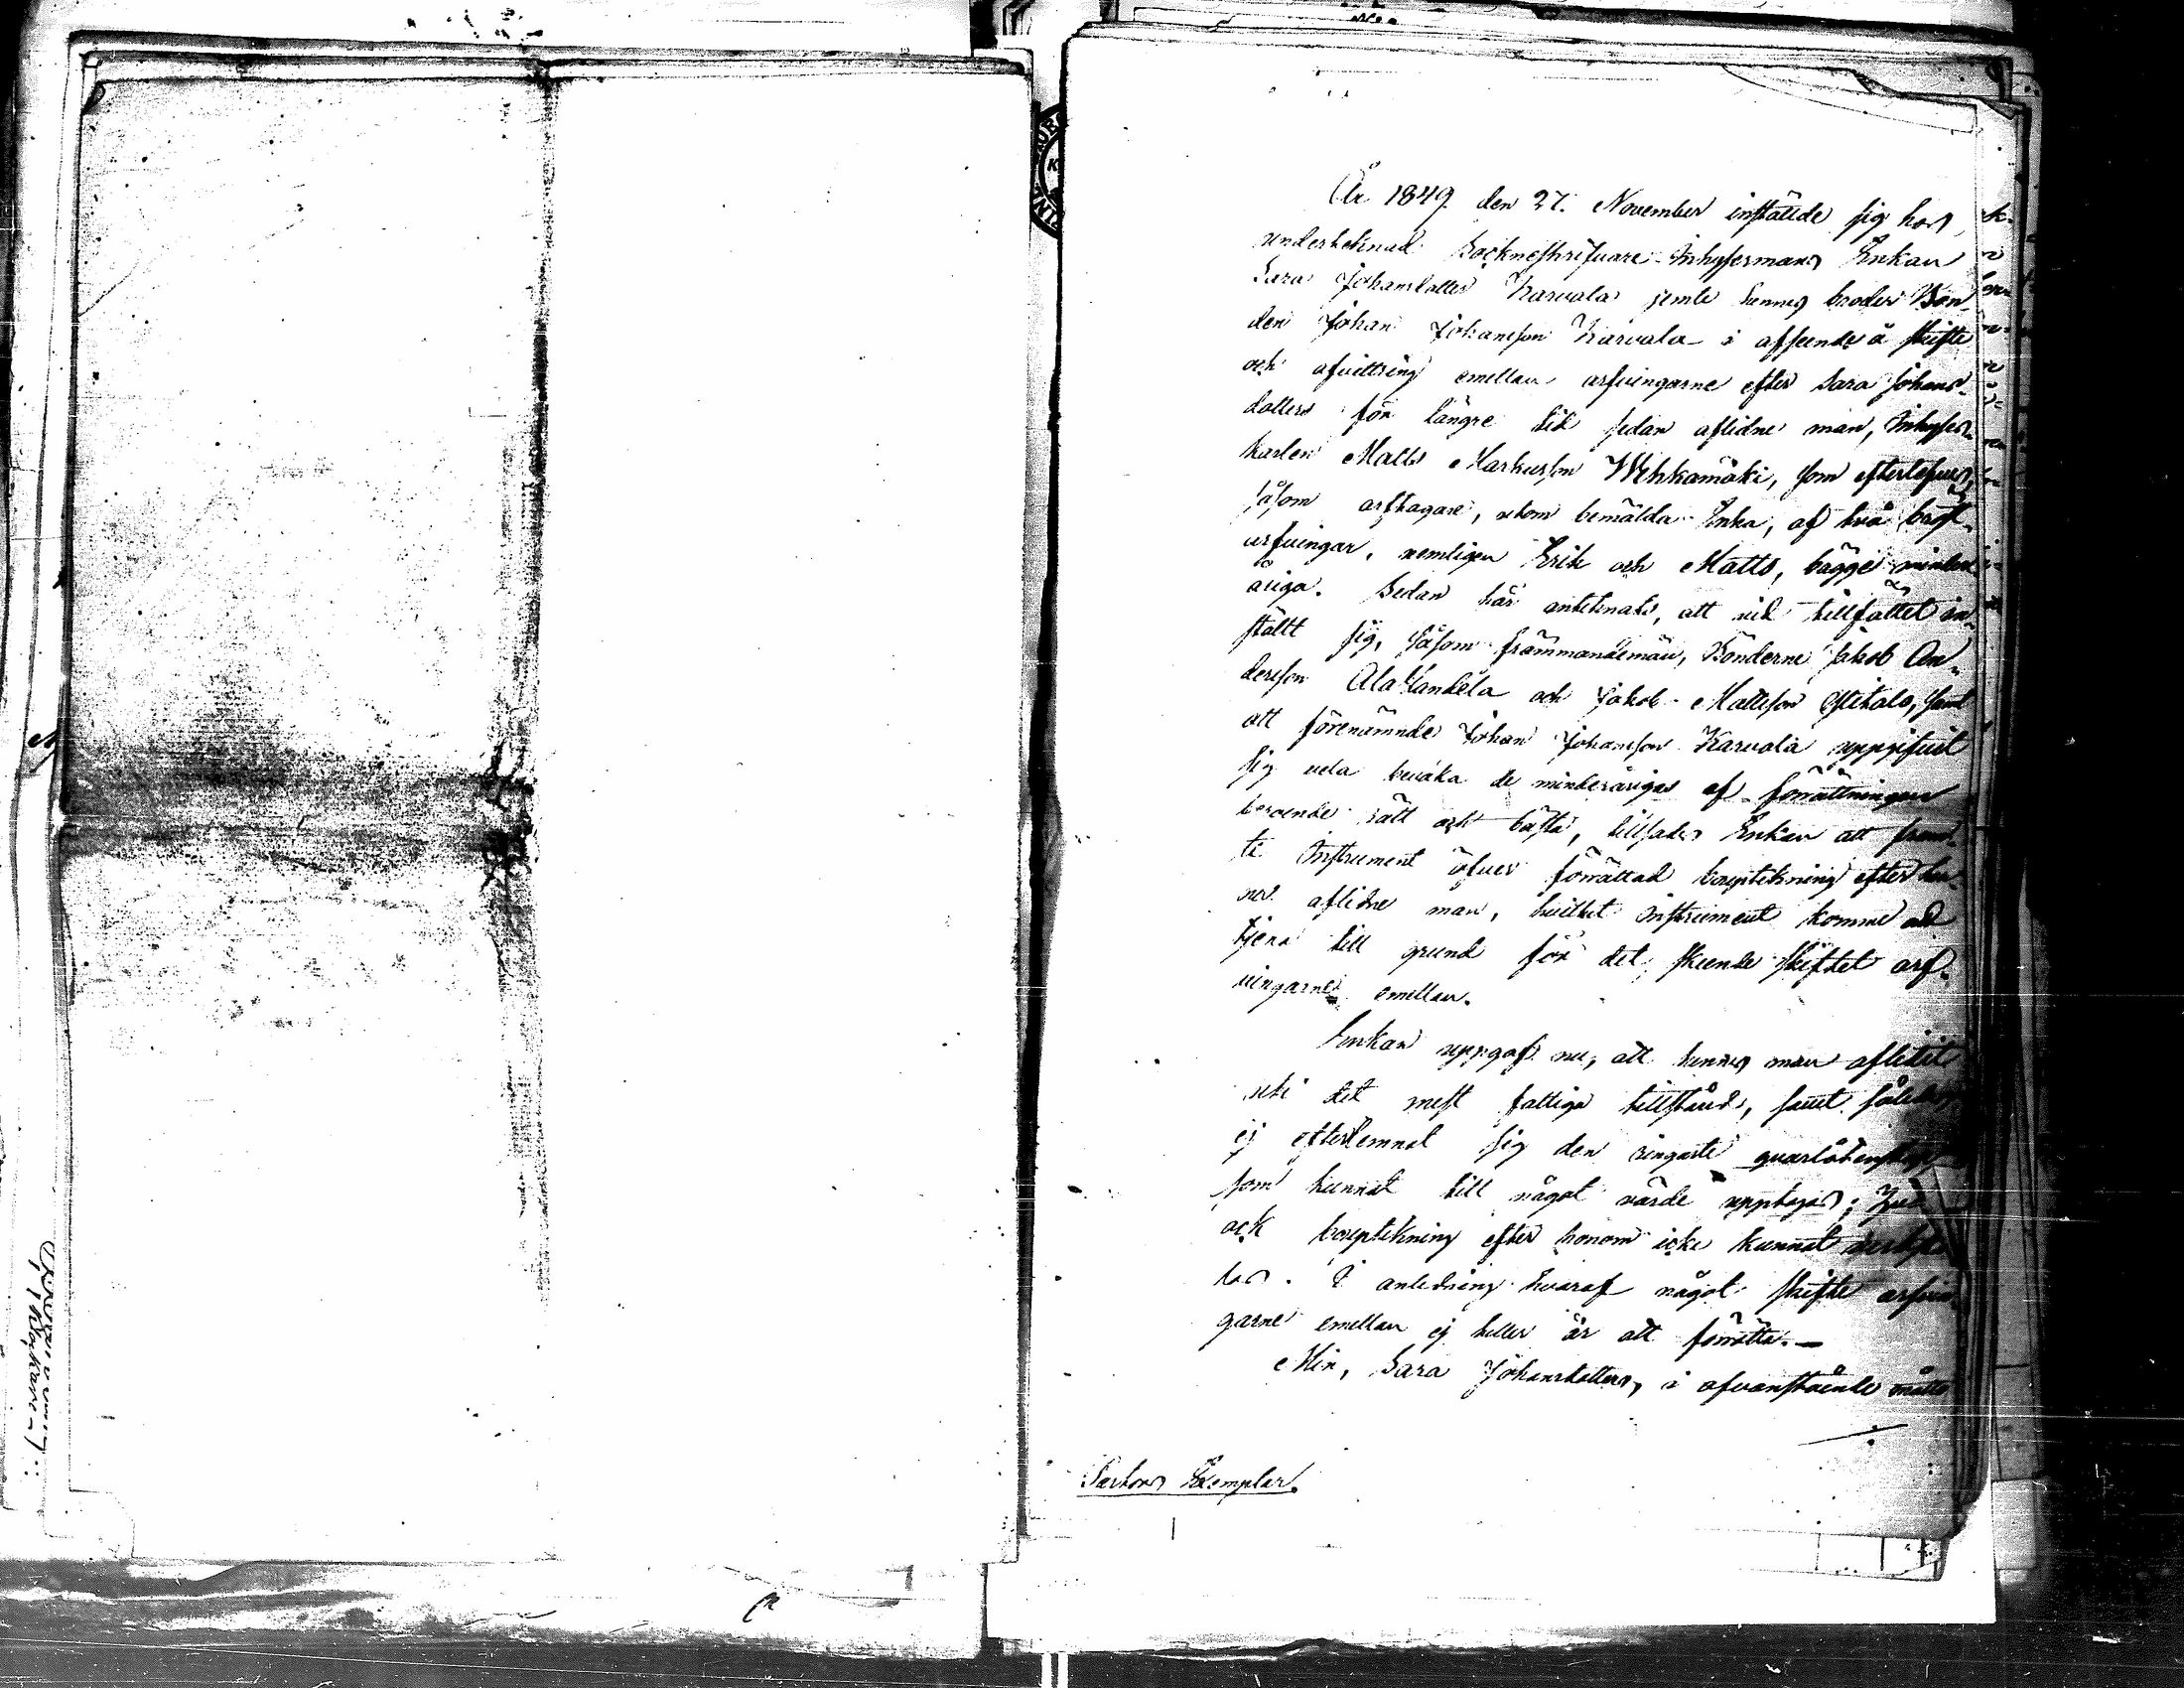 År 1849 den 27. November inställde sig hos
undertecknad Sockneskrifvare Inhysesmans Enkan
Sara Johansdotter Karvala jemte hennes broder Bon-
den Johan Johansson Karvala i afseende å skifte
och afvittring emellan arfvingarne efter Sara Johans-
dotters för längre tid sedan aflidne man, Inhyses-
karlen Matts Markusson Wehkamäki, som efterlefves,
såsom arftagare, utom bemälda Enka, af två bröst-
arfvingar, nemligen Erik och Matts, bägge minder-
åriga. Sedan här antecknats, att vid tillfället in-
stält sig, såsom främmandemän, Bönderne Jakob An-
dersson Ala Handela och Jakob Mattsson samt
att förenämnde Johan Johansson Karvala uppgifvit
sig vela bevaka de minderårigas af förrättningen
beroende rätt och bästa, tillsades Enkan att fram-
te Instrument öfver förrättad bouptekning efter hen-
nes aflidne man, hvilket Instrument komme att
tjena till grund för det skeende skiftet arf-
vingarne emellan.
Enkan uppgaf nu, att hennes man aflidit
uti det mest fattiga tillstånd, samt således
ej efterlemnat sig den ringaste qvarlåtenskap
som kunnat till något värde upptagas;
ock bouptekning efter honom icke kunnat verkstäl-
las. I anledning hvaraf något skifte arfvin-
garne emellan ej heller är att förrätta. —
Min, Sara Johansdotters, i ofvanstående måtto
Sartons Exemplar.